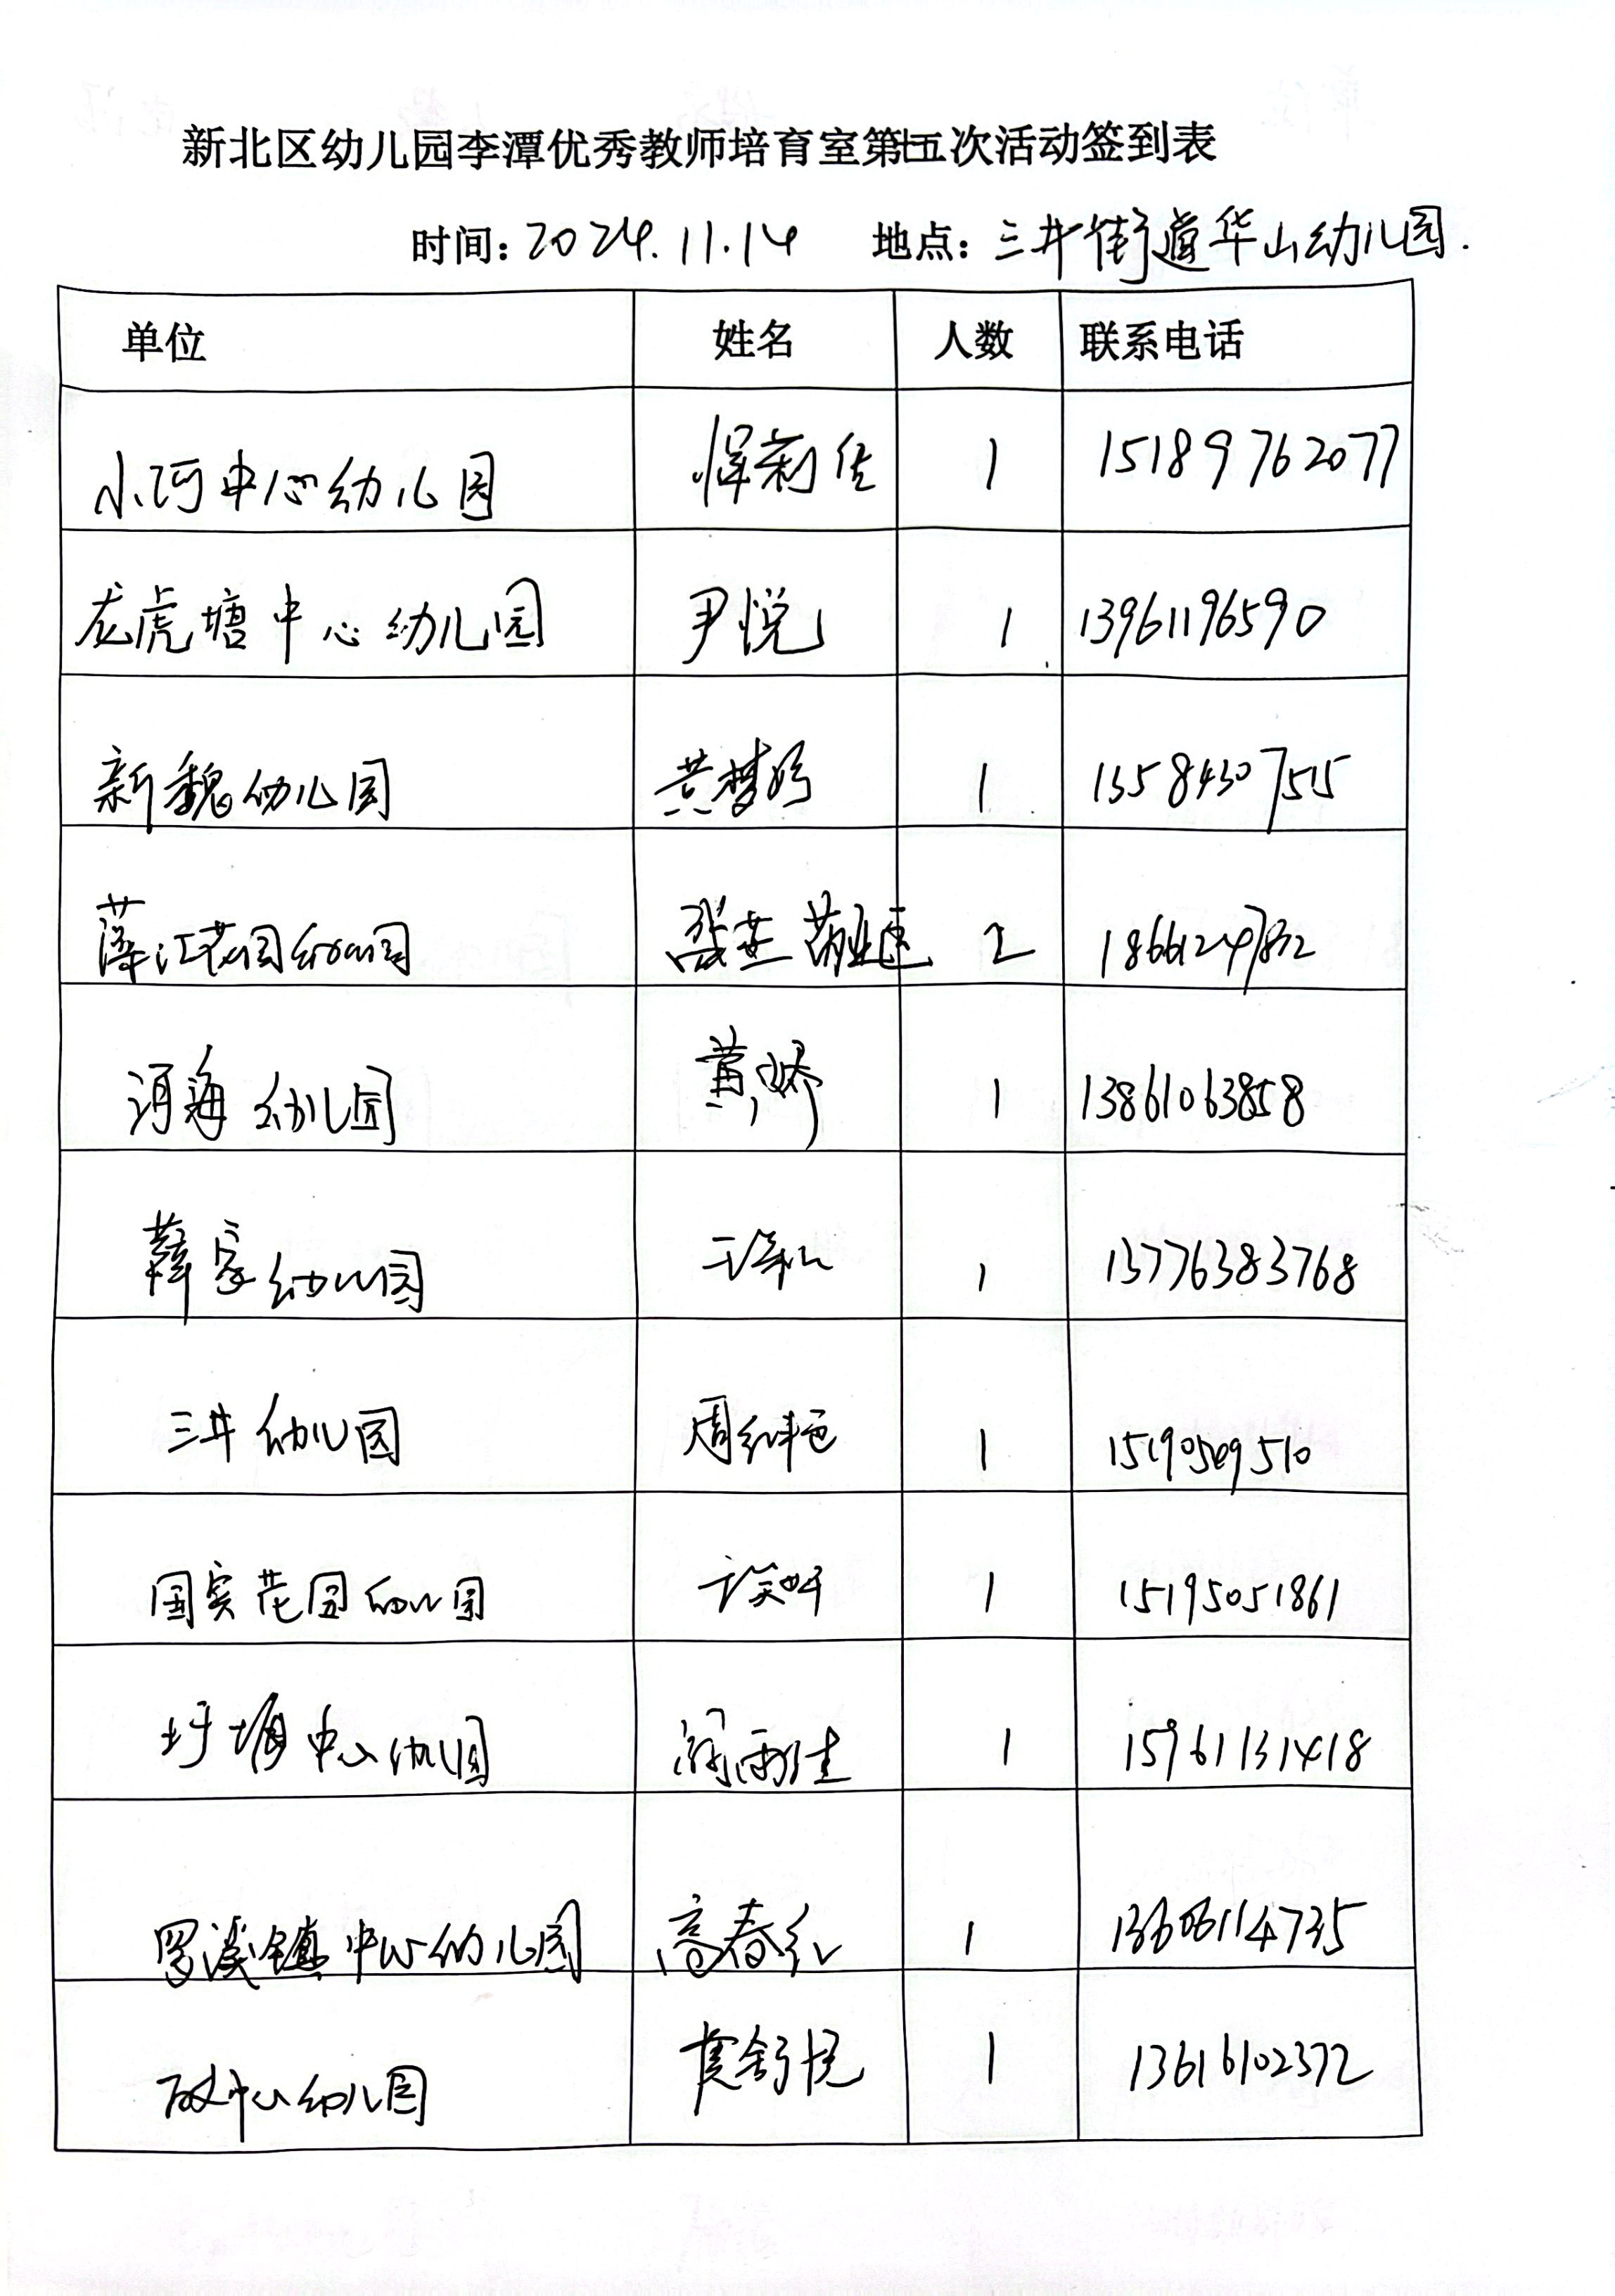 新北区幼儿园李潭优秀教师培育室第十五次活动签到表
时间：2024.11.14 地点：三井街道华山幼儿园.
单位 姓名 人数 联系电话
小河中心幼儿园 恽莉佳 1 15189762077
龙虎塘中心幼儿园 尹悦 1 13961196590
新魏幼儿园 黄梦婷 1 13584307515
藻江花园幼儿园 张芷 2
河海幼儿园 黄娇 1 13861063858
薛家幼儿园 1 13776383768
三井幼儿园 周红艳 1
国宾花园幼儿园 1 15195051861
圩塘中心幼儿园 1 15961131418
罗溪镇中心幼儿园 高春红 1
中心幼儿园 虞舒悦 1 13616102372